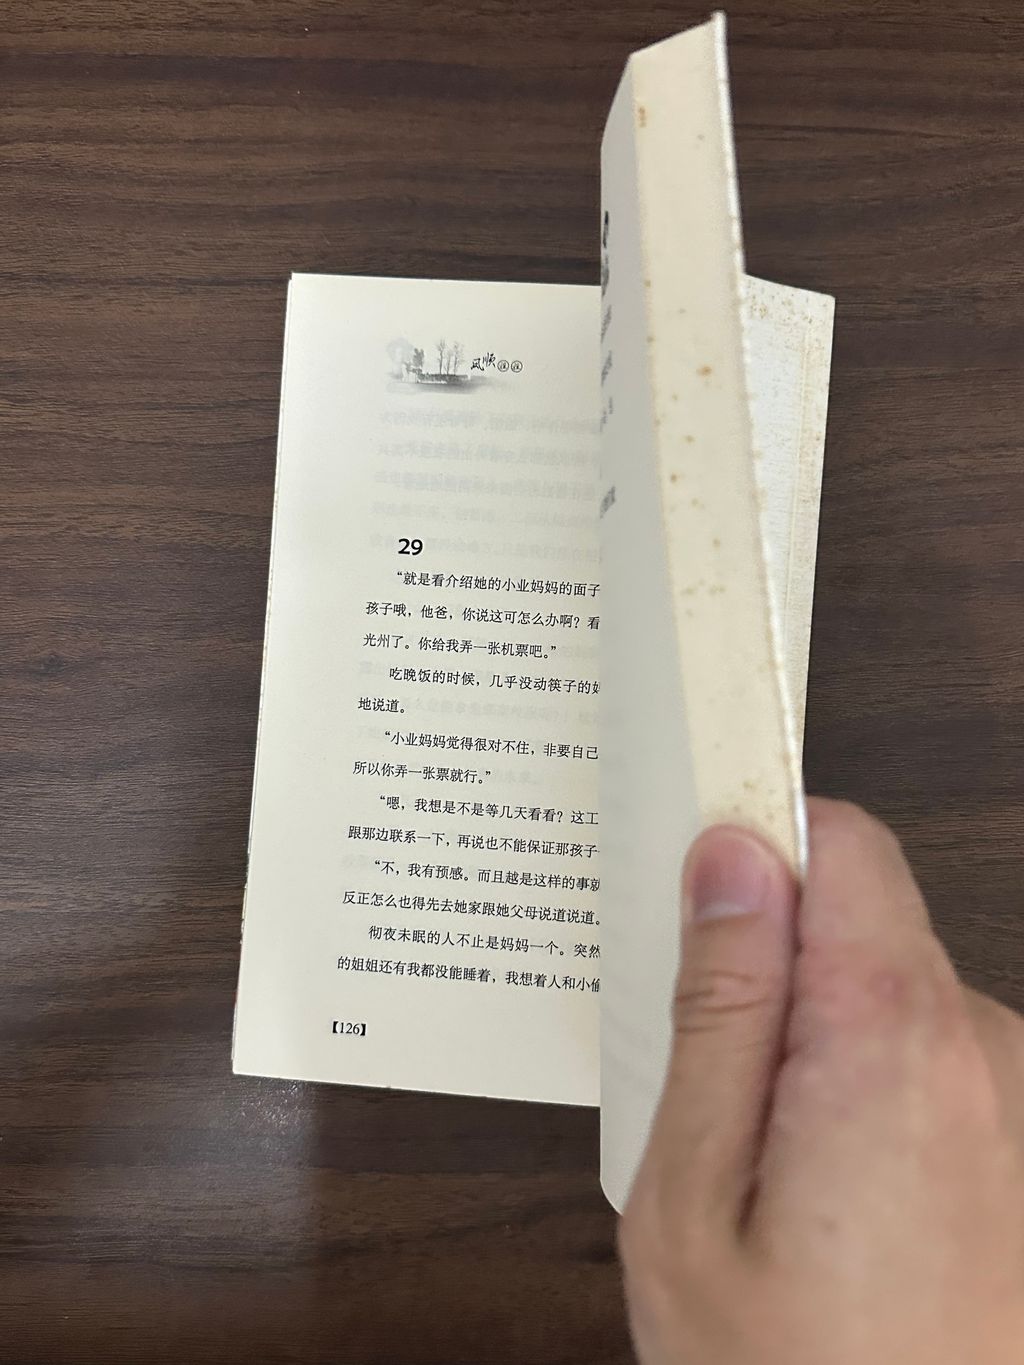 凤顺
29
“就是看介绍她的小业妈妈的面子
孩子哦，他爸，你说这可怎么办啊？看
光州了。你给我弄一张机票吧。”
吃晚饭的时候，几乎没动筷子的妈
地说道。
“小业妈妈觉得很对不住，非要自己
所以你弄一张票就行。”
“嗯，我想是不是等几天看看？这工
跟那边联系一下，再说也不能保证那孩子
“不，我有预感。而且越是这样的事就
反正怎么也得先去她家跟她父母说道说道。
彻夜未眠的人不止是妈妈一个。突然
的姐姐还有我都没能睡着，我想着人和小偷
【126】